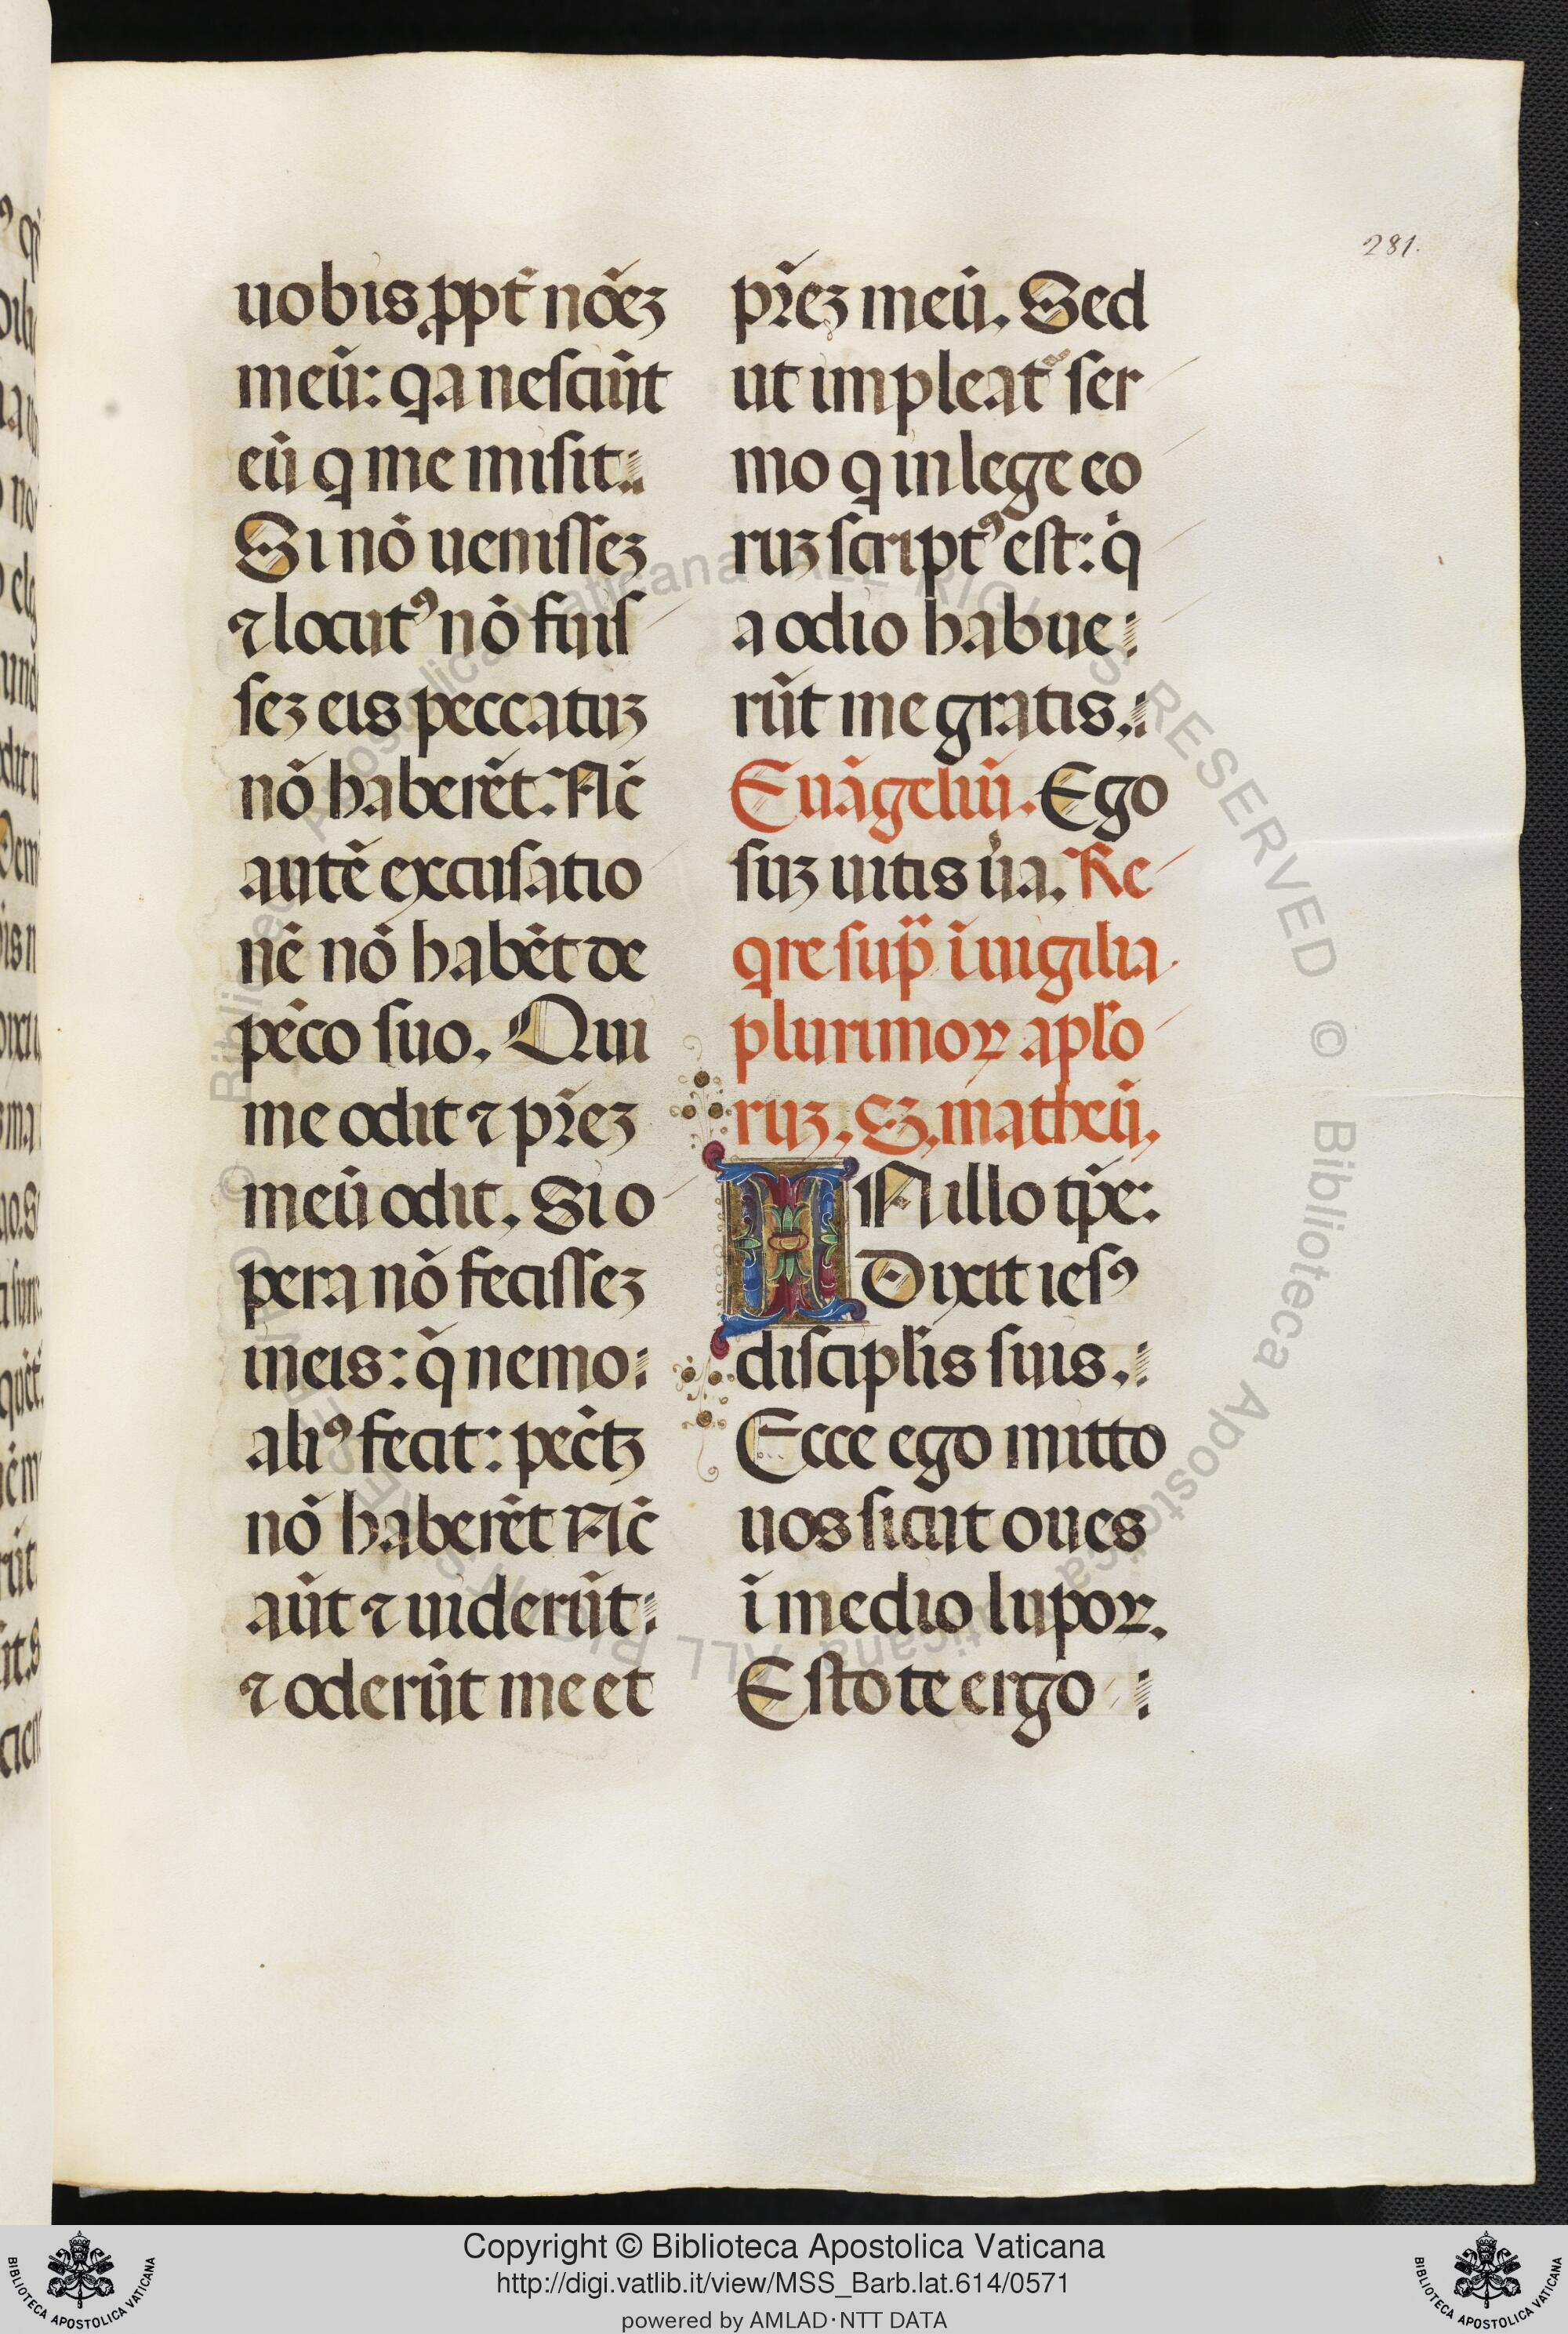 281.
uobis ꝓpt̄ noēꝫ
meū: qa nesciūt
eū q me misit.
Si nō uenisseꝫ
⁊ locutꝰ nō fuis
seꝫ eis peccatuꝫ
nō haberēt. Nc̄
autē excusatio
nē nō habēt de
pēco suo. Qui
me odit ⁊ pr̄eꝫ
meū odit. Si o
pera nō fecisseꝫ
in eis: q̄ nemo
aliꝰ fecit: pec̄tꝫ
nō haberēt Nc̄
aūt ⁊ uiderūt
⁊ oderūt me et
pr̄eꝫ meū. Sed
ut impleat᷑ ser
mo q in lege eo
ruꝫ scriptꝰ est: q̇
a odio habue
rūt me gratis.
Euāgeliū. Ego
suꝫ uitis ůa. Re
qre sup̄ ī uigilia
plurimoꝝ apl̄o
ruꝫ. Sꝫ. matheū.
IN illo tp̄e:
Dixit iesꝰ
discipl̄is suis.
Ecce ego mitto
uos sicut oues
ī medio lupoꝝ.
Estote ergo
© Biblioteca Apostolica Vaticana ALL RIGHTS RESERVED © Biblioteca Apostolica Vaticana ALL RIGHTS RESERVED
Copyright © Biblioteca Apostolica Vaticana
http://digi.vatlib.it/view/MSS_Barb.lat.614/0571
powered by AMLAD·NTT DATA
BIBLIOTECA APOSTOLICA VATICANA
BIBLIOTECA APOSTOLICA VATICANA